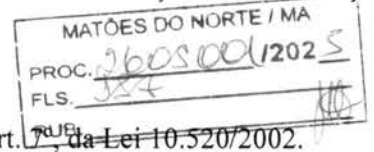 MATÕES DO NORTE / MA
PROC. 2605001/2025
FLS.
RUB.
rt. 7º, da Lei 10.520/2002.